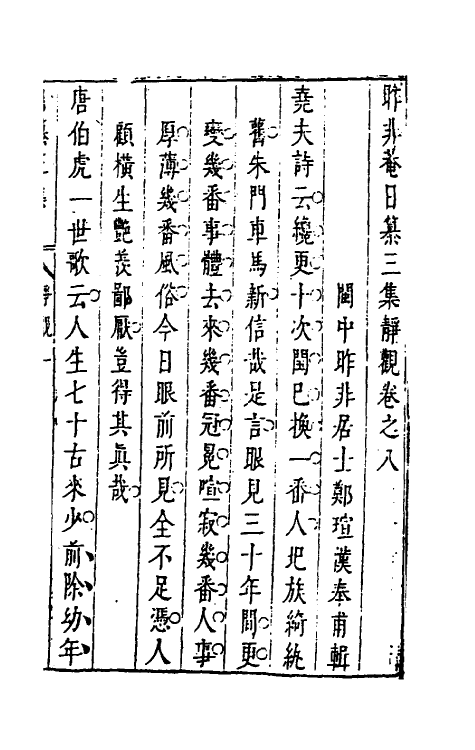 昨非菴日纂三集靜觀卷之八
閩中昨非居士鄭瑄漢奉甫輯
堯夫詩云纔更十次閏已換一番人圯族綺紈
舊朱門車馬新信哉是言眼見三十年間更
變幾番事體去來幾番冠冕喧寂幾番人事
厚薄幾番風俗今日眼前所見全不足憑人
顧橫生艷羨鄙厭豈得其真哉
唐伯虎一世歌云人生七十古來少前除幼年
靜觀一